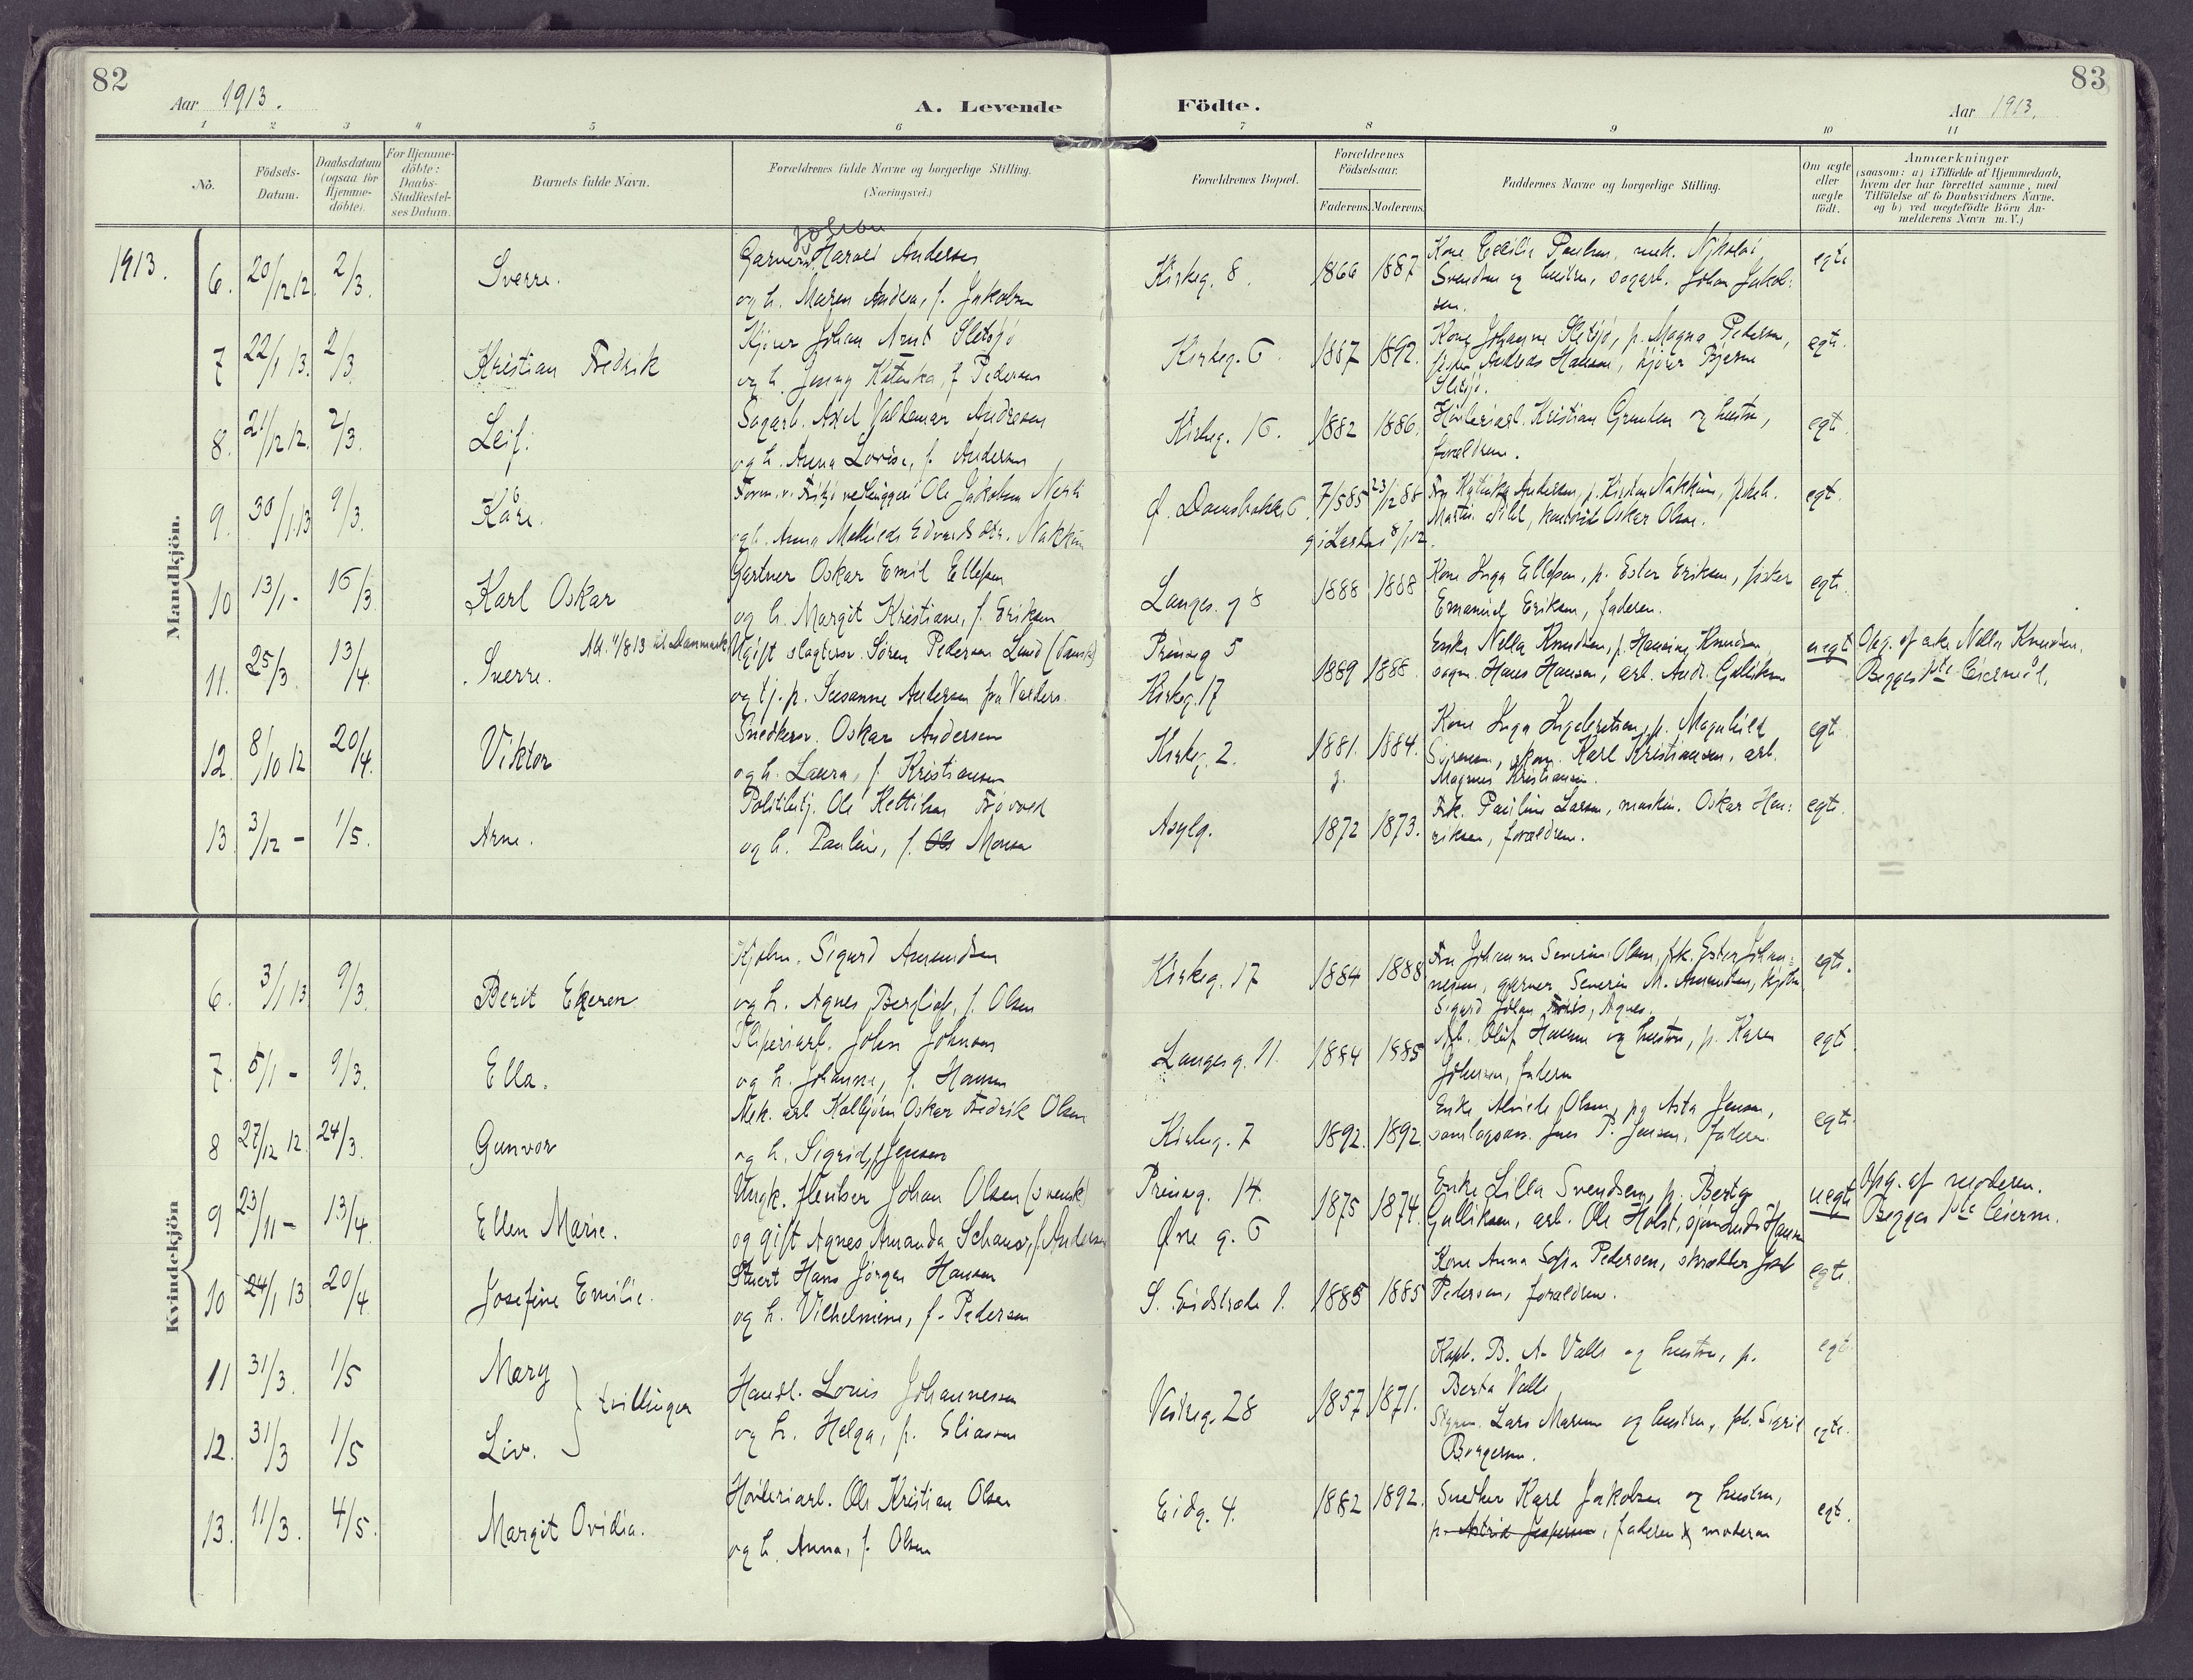 82
Aar 1913.
A. Levende
Födte.
Aar 1913.
83
1 2 3 4 5 6 7 8 9 10 11
No.
Födsels-
Datum.
Daabsdatum
(ogsaa for
Hjemme-
döbte).
For Hjemme-
döbte:
Daabs-
Stadfæstel-
ses Datum.
Barnets fulde Navn.
Forældrenes fulde Navne og borgerlige Stilling.
(Næringsvei.)
Forældrenes Bopæl.
Forældrenes
Födselsaar.
Faderens.
Moderens.
Faddernes Navne og borgerlige Stilling.
Om ægte
eller
uægte
födt.
Anmærkninger
(saasom: a) i Tilfælde af Hjemmedaab,
hvem der har forrettet samme, med
Tilföielse af to Daabsvidners Navne.
og b) ved uægtefödte Börn An-
melderens Navn m. V.)
Mandkjön.
1913.
6. 20/12 12. 2/3. Sverre.
Johan
Garver Harald Andersen
og h. Maren Andrea, f. Jakobsen
Kirkeg. 8. 1866 1887
Kone Cecilie Paulsen, mek. Nikolai
Svendsen og hustru, sagarb. Johan Jakob-
sen.
egte
7 22/1 13. 2/3. Kristian Fredrik
Kjører Johan Arnt Sletsjø
og h. Jenny Katinka, f. Pedersen
Kirkeg. 6. 1887 1892.
Kone Johanne Sletsjø, p. Magna Pedersen,
Andreas Hansen, kjører Bjarne
Sletsjø.
egte.
8. 21/12 12. 2/3. Leif.
Sagarb. Axel Valdemar Andresen
og h. Anna Lovise, f. Andersen
Kirkeg. 16. 1882 1886.
Høvleriarb. Kristian og hustru,
forældrene.
egte.
9. 30/1 13 9/3. Kåre.
Form. v. Ole Jakobsen
og h. Anna Mathilde Edvardsdtr. Nakkim
Ø. Damsbakke 6. 7/5 85 23/12 88
g. i Larvik
Fru Katinka Andersen, p. Kirsten Nakkim,
Martin Oskar Olsen.
egt.
10 13/1 - 16/3 Karl Oskar
Gartner Oskar Emil Ellefsen
og h. Margit Kristiane, f. Eriksen
Langesg. 8 1888 1888
Kone Inga Ellefsen, p. Ester Eriksen,
Emanuel Eriksen, faderen.
egte.
11. 25/3. 13/4. Sverre.
Att. 11/8 13 til Danmark
Ugift slagtersv. Sören Pedersen Lund (dansk)
og tj. p. Susanne Andersen fra
Prinseg 5
Kirkeg. 17
1889 1888.
Enke Nella Knudsen, p. Hansine Knudsen,
sagm. Hans Hansen, arb. Andr. Gulliksen
uegt.
Opg. af enke Nella Knudsen.
Begges 1ste leiermål.
12. 8/10 12 20/4. Viktor
Snedkersv. Oskar Andersen
og h. Laura, f. Kristiansen
Kirkeg. 2. 1881. 1884.
Kone Inga Ingebretsen, p. Magnhild
Karl Kristiansen, arb.
Magnus Kristiansen.
egt.
13 3/12 - 1/5. Arne.
Politibetj. Ole
og h. Pauline, f. Monsen
Asylg. 1872 1873.
Frk. Pauline Larsen, maskin. Oskar Hen-
riksen, forældrene.
egte.
Kvindekjön
6. 3/1 13 9/3. Berit Ekeren
Kjøbm. Sigurd Amundsen
og h. Agnes Bergliot, f. Olsen
Kirkeg. 17 1884 1888
Fru Johanne Severine Olsen, frk. Ester Johan-
nesen, garver Severin M. Amundsen, kjøbm.
Sigurd Johan, Agnes.
egte.
7. 5/1 - 9/3. Ella.
Sliperiarb. John Johnsen
og h. Johanne, f. Hansen
Langesg. 11. 1884 1885
Arb. Oluf Hansen og hustru, p. Karen
Johnsen, faderen
egt.
8 27/12 12. 24/3. Gunvor
Mek. arb Kolbjörn Oskar Fredrik Olsen
og h. Sigrid, f. Jensen
Kirkeg. 7 1892. 1892
Enke Alvilde Olsen, pg Asta Jensen,
Jens P. Jensen, faderen.
egt.
9 23/11 - 13/4. Ellen Marie.
Ungk. Johan Olsen (svensk)
og gift Agnes Amanda, f. Andersen
Prinseg. 14.
Øvre g. 6
1875 1874.
Enke Lilla Svendsen, p. Berta
Gulliksen, arb. Ole Holst, sjöm. Hansen
uegte
Opg. af moderen.
Begges 1ste leierm.
10 24/1 13 20/4. Josefine Emilie.
Stuert Hans Jörgen Hansen
og h. Vilhelmine, f. Pedersen
S. Eidstræde 1. 1885 1885
Kone Anna Sofia Pedersen, skrædder
Pedersen, forældrene.
egte.
11 31/3. 1/5 Mary
12. 31/3 1/5 Liv.
tvillinger
Handl. Louis Johannessen
og h. Helga, f. Eliassen
Vestreg. 28 1857 1871.
Kapt. B. A. Valle og hustru, p.
Berta Valle
egt.
Styrm. Lars og hustru, frk. Sigrid
Borgersen.
egte.
13. 11/3. 4/5. Margit Ovidia.
Høvleriarb. Ole Kristian Olsen
og h. Anna, f. Olsen
Eidg. 4. 1882 1892.
Snedker Karl Jakobsen og hustru,
p. Astrid Jespersen, faderen & moderen
egt.